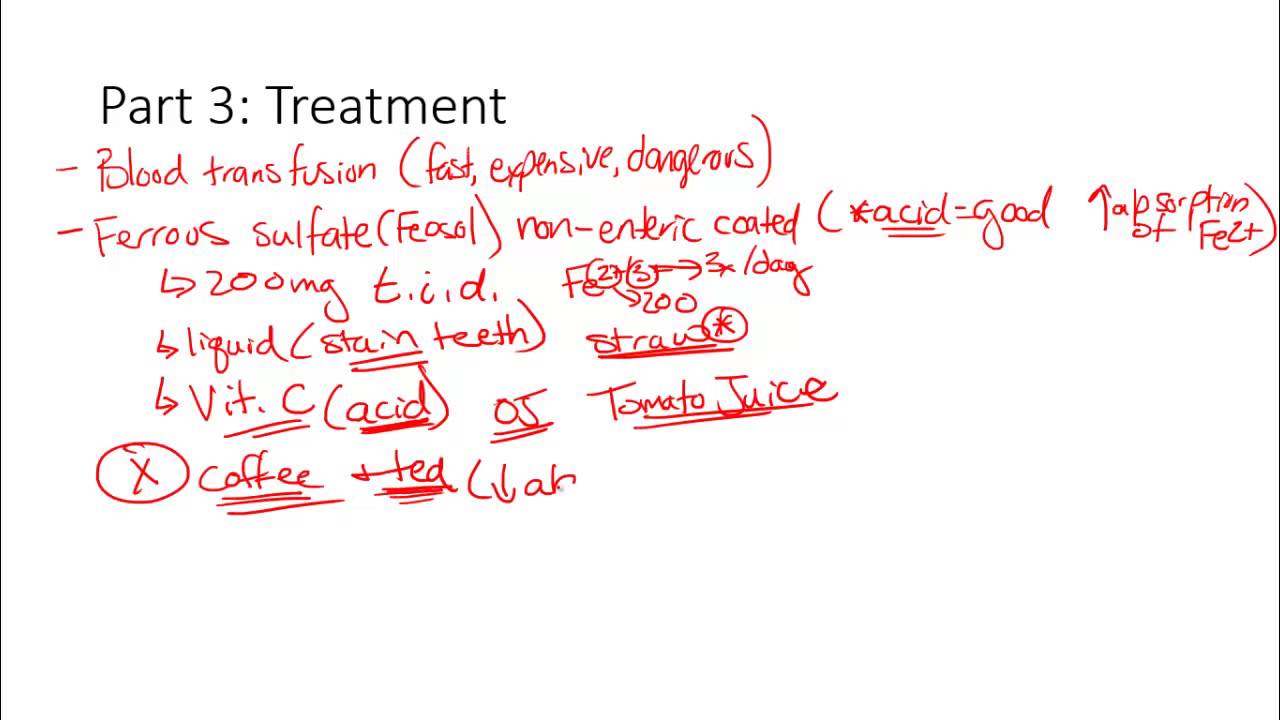 Part 3: Treatment
- Blood transfusion (fast, expensive, dangerous)
- Ferrous sulfate (Feosol) non-enteric coated (*acid = good ↑ absorption of Fe2+)
↳ 200mg t.i.d. Fe 2+/3+ → 3x/day
→ 200
↳ liquid (stain teeth) straw *
↳ Vit. C (acid) OJ Tomato Juice
X coffee + tea (↓ ab